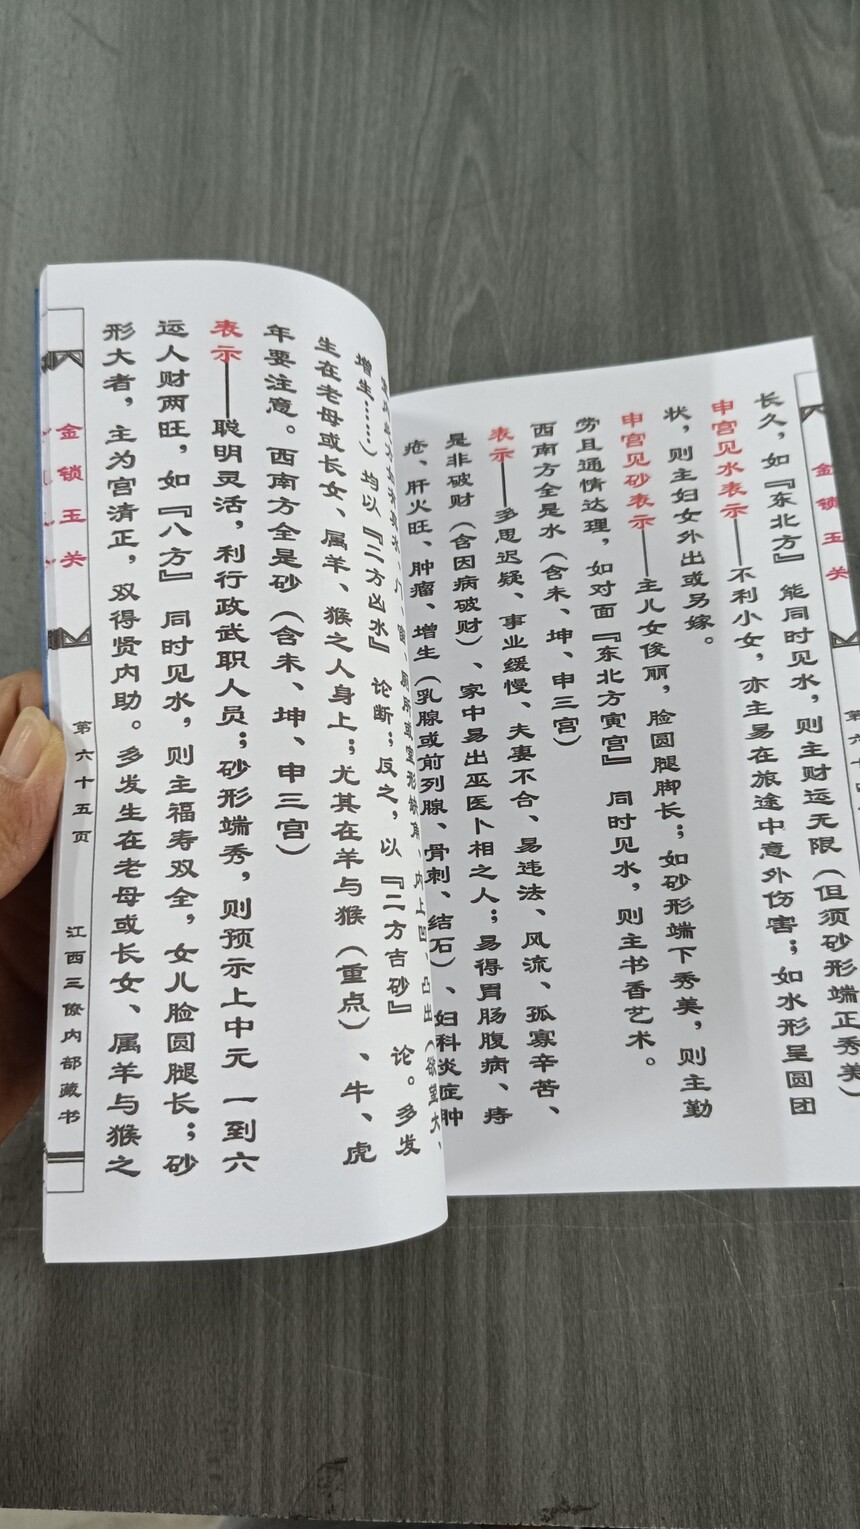 金锁玉关
长久，如『东北方』能同时见水，则主财运无限（但须砂形端正秀美）
申宫见水表示——不利小女，亦主易在旅途中意外伤害；如水形呈圆团
状，则主妇女外出或另嫁。
申宫见砂表示——主儿女俊丽，脸圆腿脚长；如砂形端下秀美，则主勤
劳且通情达理，如对面『东北方寅宫』同时见水，则主书香艺术。
西南方全是水（含未、坤、申三宫）
表示——多思迟疑、事业缓慢、夫妻不合、易违法、风流、孤寡辛苦、
是非破财（含因病破财）、家中易出巫医卜相之人；易得胃肠腹病、痔
疮、肝火旺、肿瘤、增生（乳腺或前列腺、骨刺、结石）、妇科炎症肿
增生……）均以『二方凶水』论断；反之，以『二方吉砂』论。多发
生在老母或长女、属羊、猴之人身上；尤其在羊与猴（重点）、牛、虎
年要注意。西南方全是砂（含未、坤、申三宫）
表示——聪明灵活，利行政武职人员；砂形端秀，则预示上中元一到六
运人财两旺，如『八方』同时见水，则主福寿双全，女儿脸圆腿长；砂
形大者，主为宫清正，双得贤内助。多发生在老母或长女、属羊与猴之
金锁玉关
第六十五页
江西三僚内部藏书